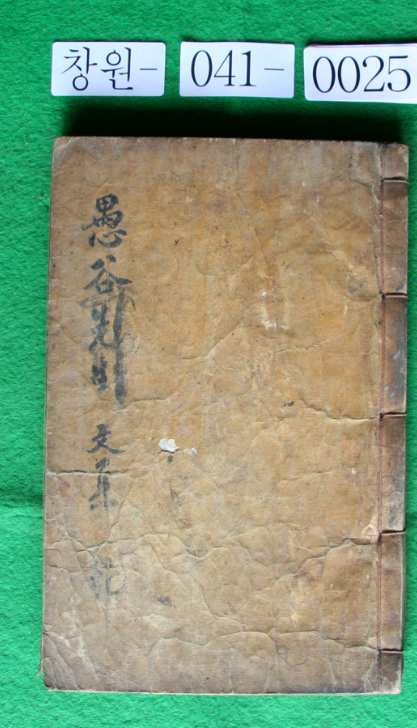 창원- 041- 0025
愚谷先生 文集